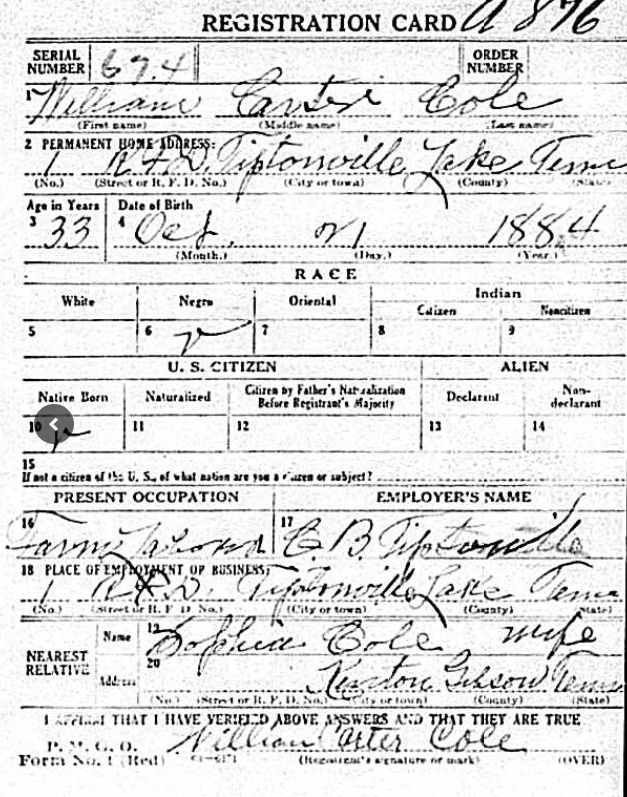 REGISTRATION CARD A 876
SERIAL NUMBER 674 ORDER NUMBER
1 William Carter Cole
(First name) (Middle name) (Last name)
2 PERMANENT HOME ADDRESS:
1 R.F.D. Tiptonville Lake Tenn
(No.) (Street or R. F. D. No.) (City or town) (County) (State)
Age in Years Date of Birth
3 33 4 Oct. 21 1884
(Month.) (Day.) (Year.)
RACE
White Negro Oriental Indian
Citizen Noncitizen
5 6 7 8 9
U. S. CITIZEN ALIEN
Native Born Naturalized Citizen by Father's Naturalization Before Registrant's Majority Declarant Non-declarant
10 11 12 13 14
15
If not a citizen of the U. S., of what nation are you a citizen or subject?
PRESENT OCCUPATION EMPLOYER'S NAME
16 Farm 17 C. B.
18 PLACE OF EMPLOYMENT OR BUSINESS:
1 R.F.D. Tiptonville Lake Tenn
(No.) (Street or R. F. D. No.) (City or town) (County) (State)
NEAREST RELATIVE
Name 19 Sophia Cole wife
Address 20 Gibson Tenn
(No.) (Street or R. F. D. No.) (City or town) (County) (State)
I AFFIRM THAT I HAVE VERIFIED ABOVE ANSWERS AND THAT THEY ARE TRUE
P. M. G. O.
Form No. 1 (Red) William Carter Cole
(Registrant's signature or mark) (OVER)